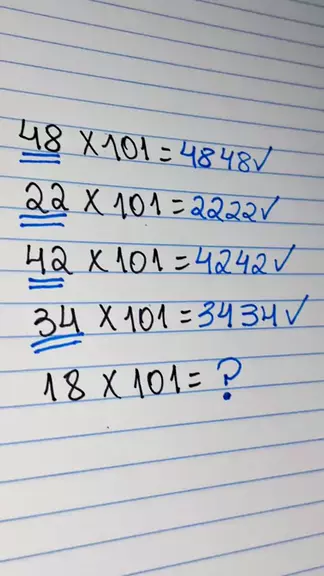 48 X 101 = 4848✓
22 X 101 = 2222✓
42 X 101 = 4242✓
34 X 101 = 3434✓
18 X 101 = ?